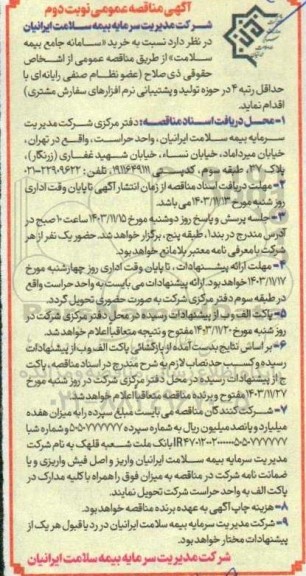 آگهی مناقصه عمومی نوبت دوم
شرکت مدیریت سرمایه بیمه سلامت ایرانیان
در نظر دارد نسبت به خرید «سامانه جامع بیمه
سلامت» از طریق مناقصه عمومی از اشخاص
حقوقی ذی صلاح (عضو نظام صنفی رایانه‌ای با
حداقل رتبه ۴ در حوزه تولید و پشتیبانی نرم افزارهای سفارش مشتری)
اقدام نماید.
۱- محل دریافت اسناد مناقصه: دفتر مرکزی شرکت مدیریت
سرمایه بیمه سلامت ایرانیان، واحد حراست، واقع در تهران،
خیابان میرداماد، خیابان نساء، خیابان شهید غفاری (زرنگار)،
پلاک ۳۷، طبقه سوم، کدپستی ۱۹۱۱۶۴۹۱۱۱، تلفن: ۲۲۹۰۹۶۲۲-۰۲۱
۲- مهلت دریافت اسناد مناقصه از زمان انتشار آگهی تا پایان وقت اداری
روز شنبه مورخ ۱۴۰۳/۱۱/۱۳ می باشد.
۳- جلسه پرسش و پاسخ روز دوشنبه مورخ ۱۴۰۳/۱۱/۱۵ ساعت ۱۰ صبح در
آدرس مندرج در بند۱، طبقه پنج، برگزار خواهد شد. حضور یک نفر از هر
شرکت با معرفی نامه معتبر بلامانع خواهد بود.
۴- مهلت ارائه پیشنهادات، تا پایان وقت اداری روز چهارشنبه مورخ
۱۴۰۳/۱۱/۱۷ خواهد بود. ارائه پیشنهادات می بایست به واحد حراست واقع
در طبقه سوم دفتر مرکزی شرکت به صورت حضوری تحویل گردد.
۵- پاکت الف و ب از پیشنهادات رسیده در محل دفتر مرکزی شرکت در
روز شنبه مورخ ۱۴۰۳/۱۱/۲۰ مفتوح و نتیجه متعاقبا اعلام خواهد شد.
۶- بر اساس نتایج بدست آمده از بازگشائی پاکت الف و ب از پیشنهادات
رسیده و کسب حدنصاب لازم به شرح مندرج در اسناد مناقصه، پاکت
ج از پیشنهادات رسیده در محل دفتر مرکزی شرکت در روز شنبه مورخ
۱۴۰۳/۱۱/۲۷ مفتوح و برنده مناقصه متعاقبا اعلام خواهد شد.
۷- شرکت کنندگان مناقصه می بایست مبلغ سپرده را به میزان هفده
میلیارد و پانصد میلیون ریال به شماره سپرده
بانک ملت شعبه قلهک به نام شرکت
مدیریت سرمایه بیمه سلامت ایرانیان واریز و اصل فیش واریزی و یا
ضمانت نامه شرکت در مناقصه به میزان فوق را همراه با کلیه مدارک در
پاکت الف به واحد حراست شرکت تحویل نمایند.
۸- هزینه چاپ آگهی به عهده برنده مناقصه خواهد بود.
۹- شرکت مدیریت سرمایه بیمه سلامت ایرانیان در رد یا قبول هر یک از
پیشنهادات مختار خواهد بود.
شرکت مدیریت سرمایه بیمه سلامت ایرانیان